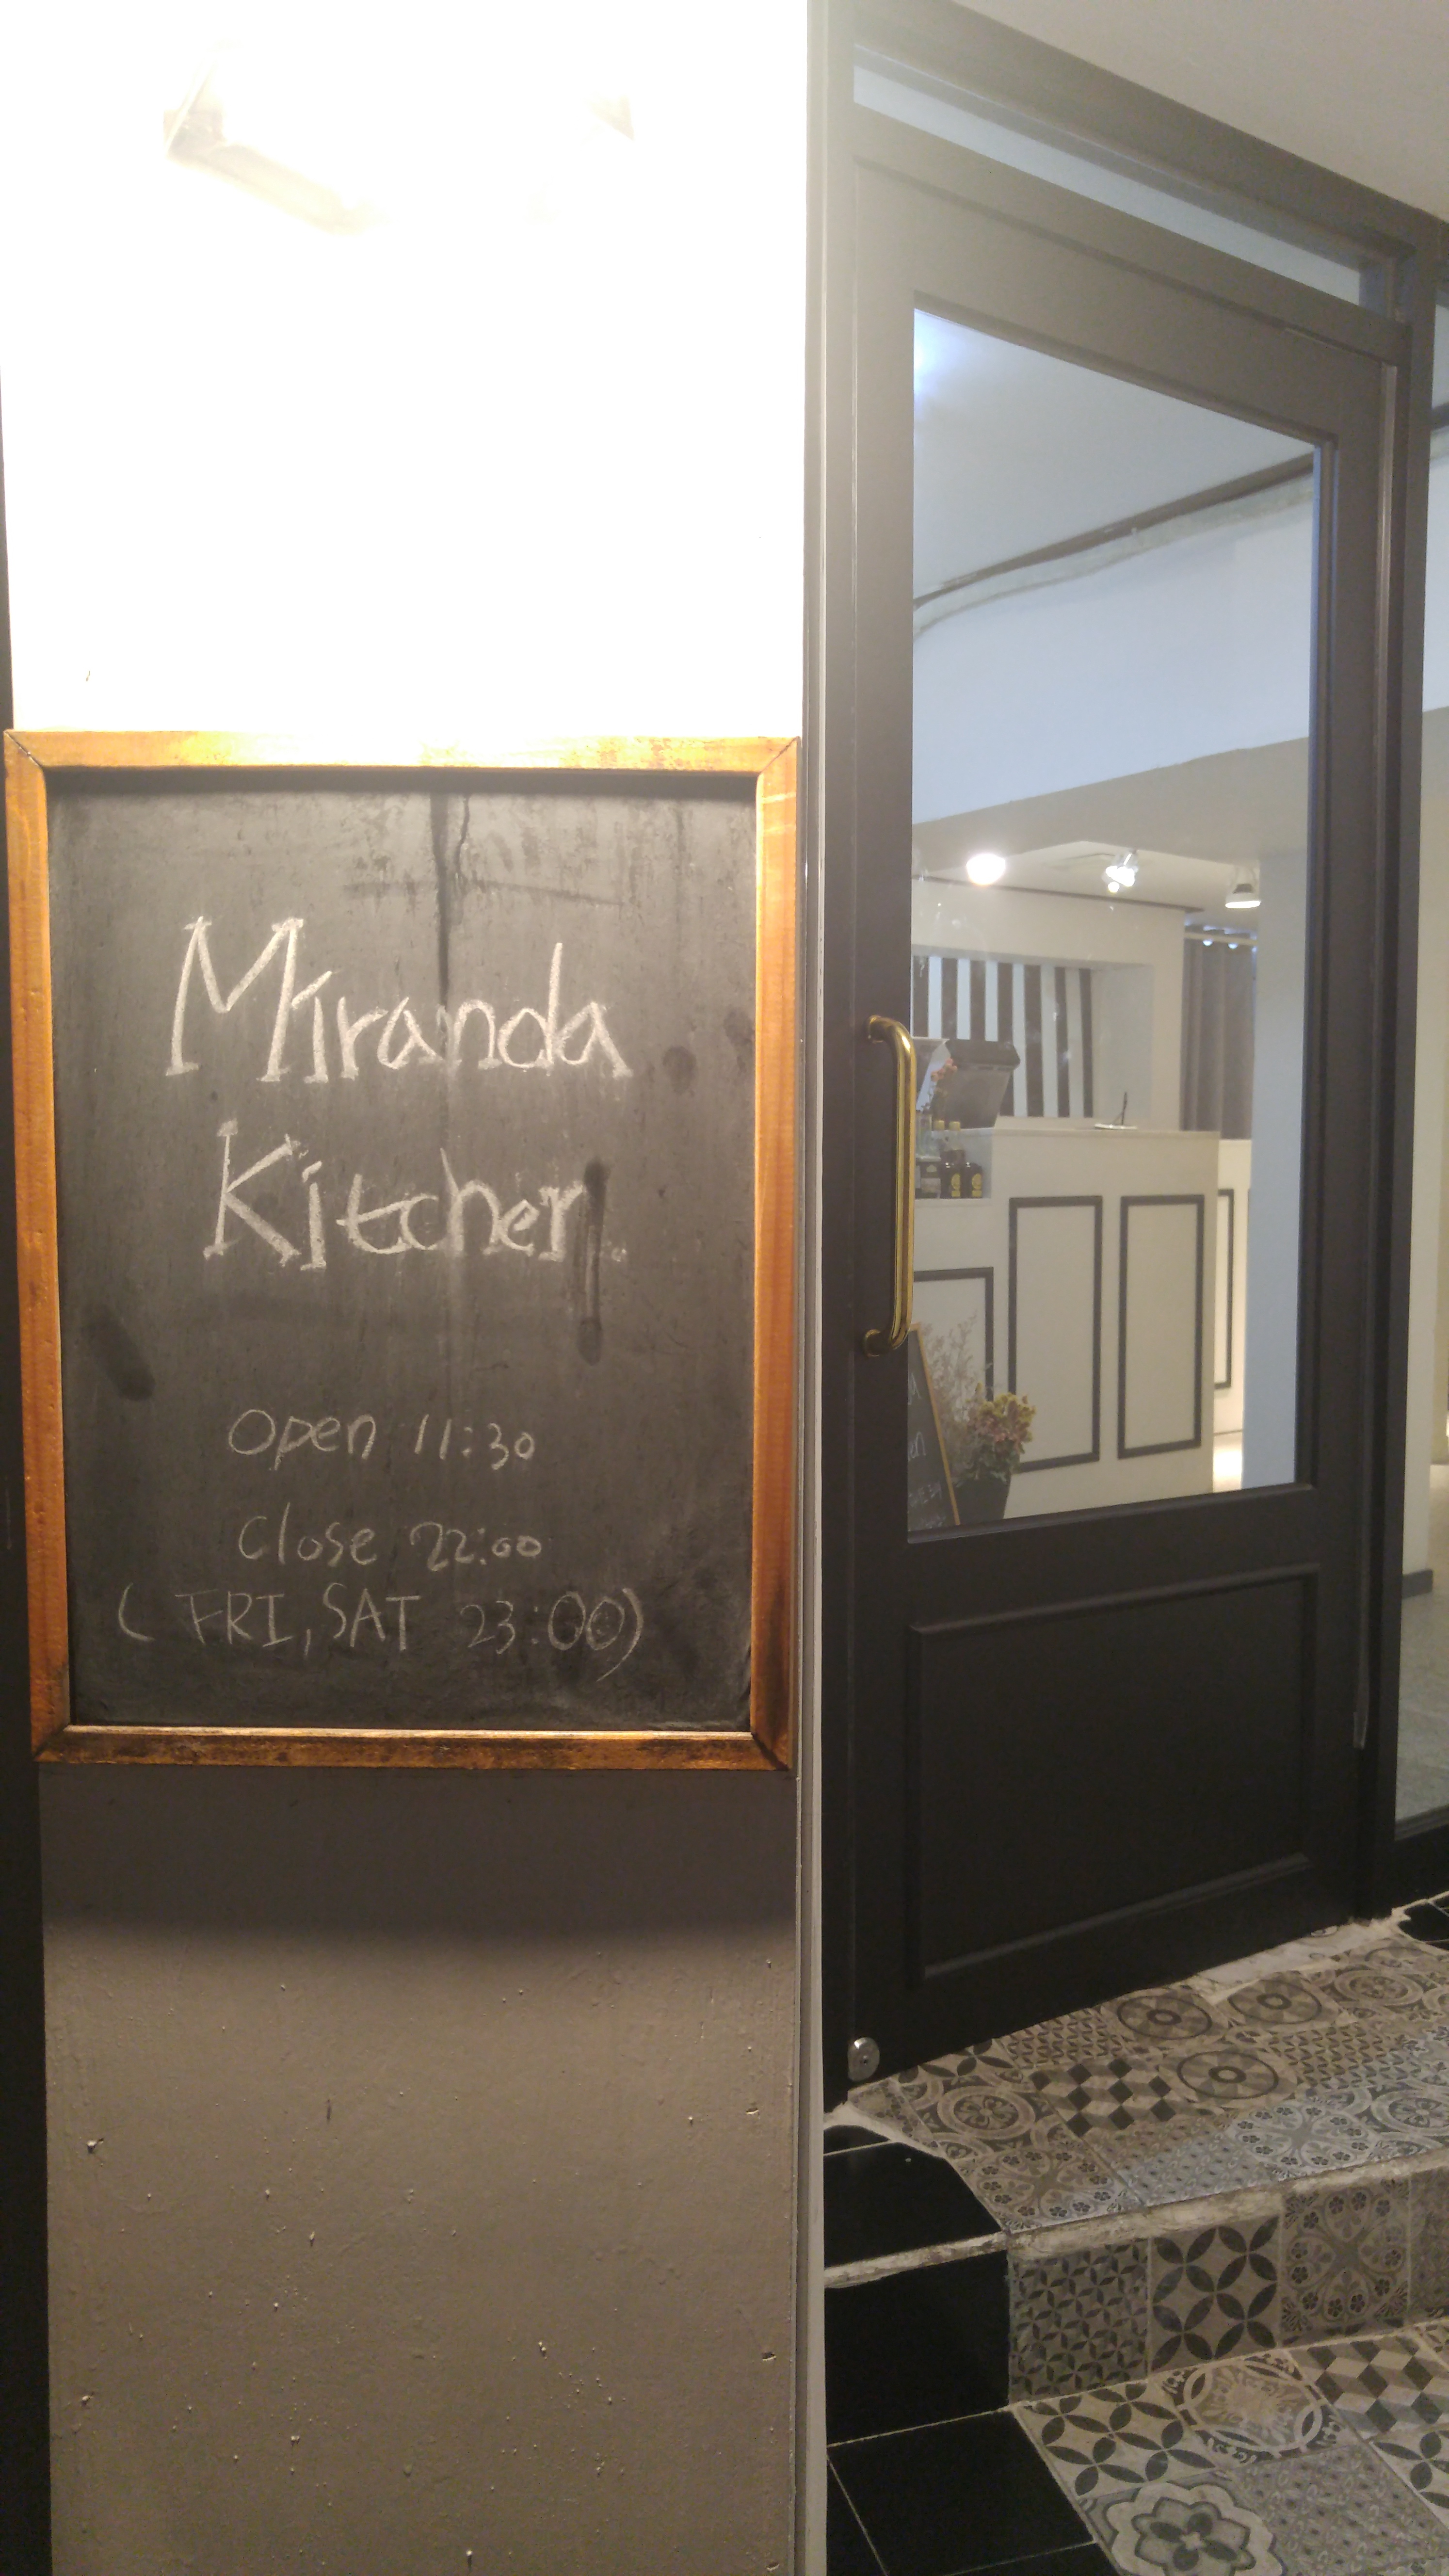 Miranda
Kitchen
Open 11:30
Close 22:00
( FRI, SAT 23:00)